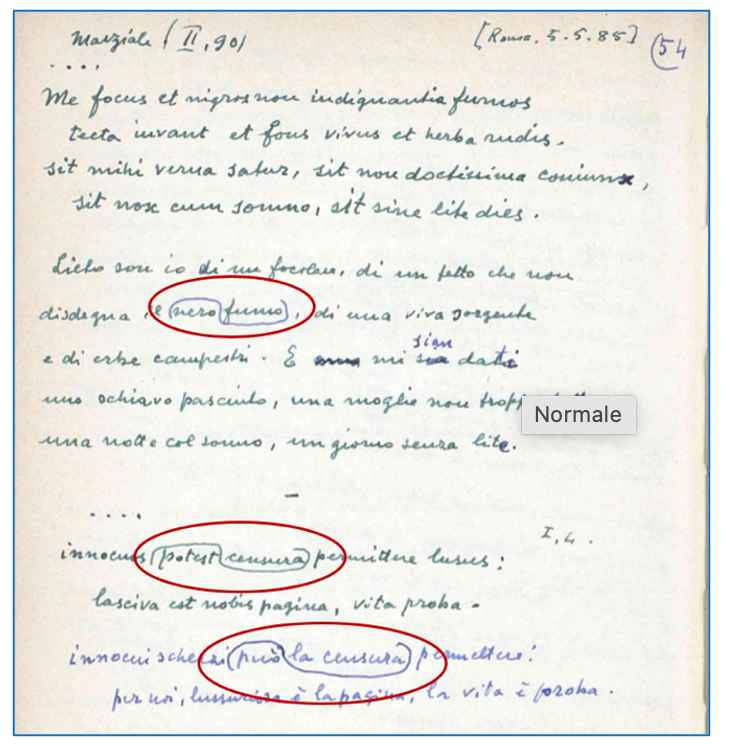 Marziale (II, 90)
[Roma, 5.5.85]
54
....
Me focus et nigros non indignantia fumos
tecta iuvant et fons vivus et herba rudis.
sit mihi verna satur, sit non doctissima coniunx,
sit nox cum somno, sit sine lite dies.
Lieto son io di un focolare, di un tetto che non
disdegna il nero fumo, di una viva sorgente
e di erbe campestri. E mi sian dati
uno schiavo pasciuto, una moglie non
Normale
una notte col sonno, un giorno senza lite.
....
I, 4.
innocuos potest censura permittere lusus:
lasciva est nobis pagina, vita proba.
innocui scherzi può la censura permettere:
per noi, lussuriosa è la pagina, la vita è proba.